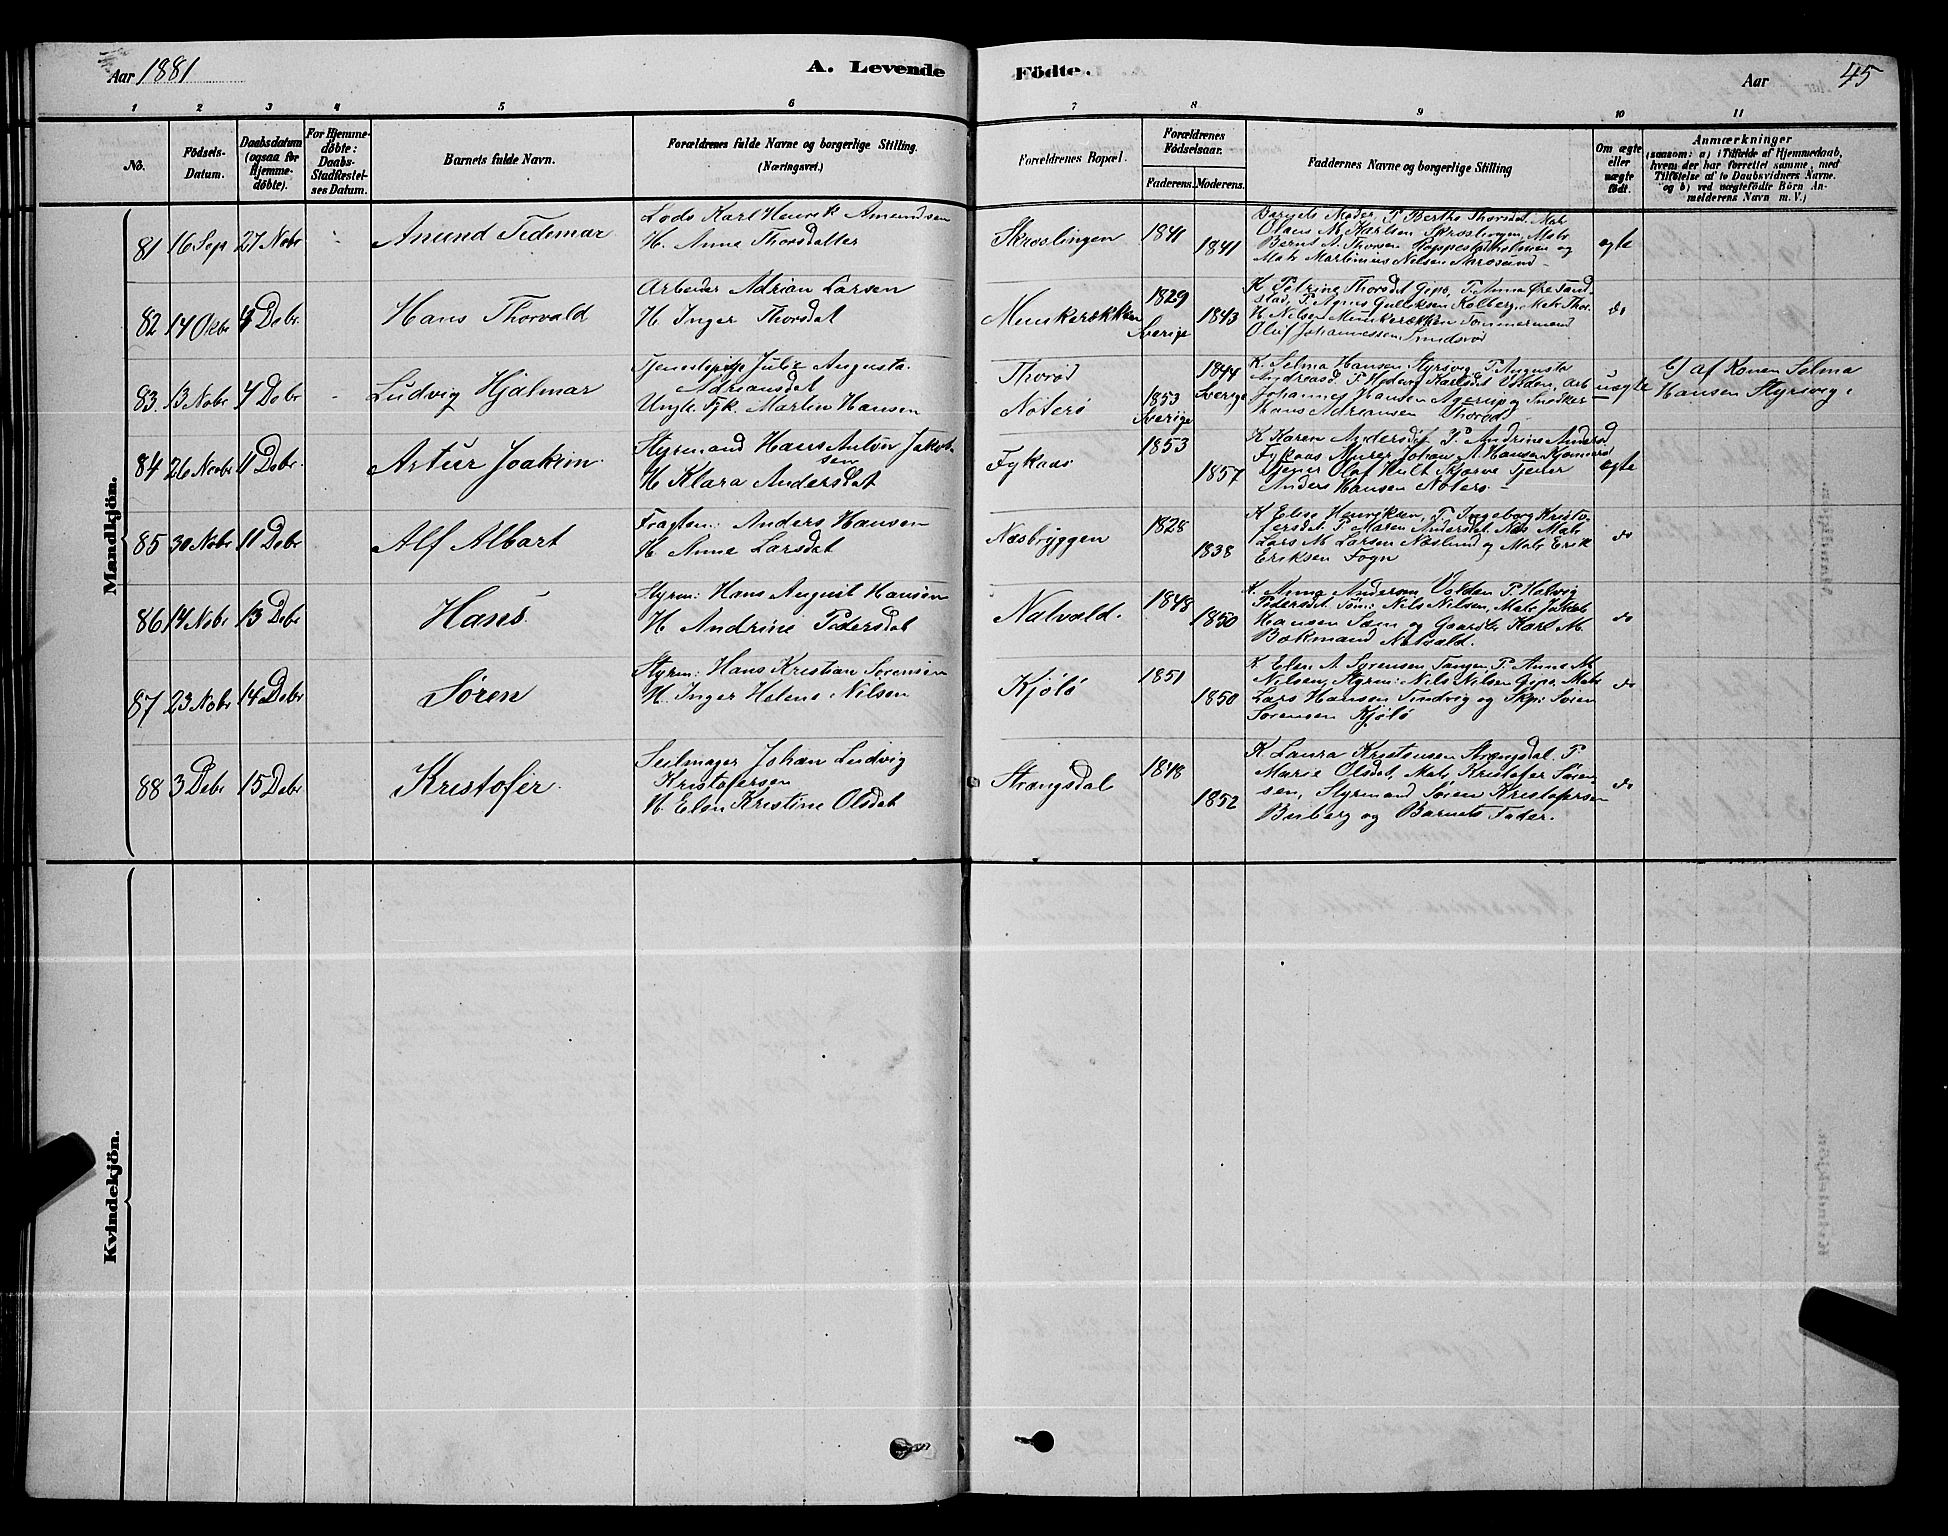 Aar 1881
A. Levende
Födte.
Aar
45
1 2 3 4 5 6 7 8 9 10 11
No.
Födsels-
Datum.
Daabsdatum
(ogsaa for
Hjemme-
døbte).
For Hjemme-
døbte:
Daabs-
Stadfæstel-
ses Datum.
Barnets fulde Navn.
Forældrenes fulde Navne og borgerlige Stilling.
(Næringsvei.)
Forældrenes Bopæl.
Forældrenes
Födselsaar.
Faderens. Moderens.
Faddernes Navne og borgerlige Stilling
Om ægte
eller
uægte
födt.
Anmærkninger
(saasom: a) i Tilfælde af Hjemmedaab,
hvem der har forrettet samme, med
Tilföielse af to Daabsvidners Navne.
og b) ved uægtefödte Börn An-
melderens Navn m. V.)
Mandkjön.
81 16 Sep 27 Nobr
Amund Tidemar
Lods Karl Henrik Amundsen
H. Anne Thorsdatter
Skroslingen
1841
1841
Barnets Moder, P. Berthe Thorsdat, Mat.
Olaus M. Karlsen Skroslingen, Matr.
Bernt A. Thorsen
Holmen og
Matr Martinius Nielsen
ægte
82 14 Okbr 4 Debr
Hans Thorvald
Arbeider Adrian Larsen
H. Inger Thorsdat
Munkerækken
1829
Sverige
1843
K. Petrine Thorsdat Gipø, P. Anna Øre Sand-
stad, P. Agnes Gulliksen Kolberg, Matr Thor
H. Nilsen Munkerækken Tømmermand
Oluf Johannessen Smidsrød
do
83. 13 Nobr 4 Debr
Ludvig Hjalmar
Tjenestepige Julie Augusta
Adriansdat
Ungk. Fyk. Martin Hansen
Thorød
Nøterø
1853
Sverige
1844
Sverige
K. Selma Hansen Styrsvig, P. Augusta
Andreasd. P. Hedvig Karlsdat Volden, Arb
Johannes Hansen Agerup og Snedker
Hans Adriansen Thorød
uægte
E) af Konen Selma
Hansen Styrsvig.
84 26 Nobr 11 Debr.
Artur Joakim
Styrmand Hans Anton Jakob-
sen
H. Klara Andersdat
Fykaas
1853
1857
K Karen Andersdat, P. Andrine Andersd
Fykaas Murer Johan A. Hansen Kjønnerød
Tjener Olaf Hult Skjerve Tjener
Anders Hansen Nøterø
ægte
85 30 Nobr 11 Debr
Alf Albart
Fragtem: Anders Hansen
H. Anne Larsdat
Næsbryggen
1828
1838
K Elise Henriksen, P. Ingeborg Kristo-
fersdat, P. Maren Andersdat Næs Matr
Lars M. Larsen Næslund og Matr Erik
Eriksen Fogn
do
86 14 Nobr 13 Debr
Hans
Styrm: Hans August Hansen
H. Andrine Pedersdat
Natvald.
1848
1850
K. Anna Andersen Volden P. Hatvig
Pedersdat, Tøm: Nils Nilsen, Matr Jakob
Hansen Sem og Gaardbr Karl M.
Bokmand Natvald.
do
87 23 Nobr 14 Debr
Søren
Styrm: Hans Kristian Sørensen
H. Inger Helene Nilsen
Kjølø
1851
1850
K. Elen A. Sørensen Tangen, P. Anna M.
Nilsen, Styrm: Nils Nilsen Gipø, Matr
Lars Hansen Tindvig og Skp: Søren
Sørensen Kjølø
do
88 3 Debr 15 Debr
Kristofer
Seilmager Johan Ludvig
Kristofersen
H. Elen Kristine Olsdat
Strengsdal
1848
1852
K. Laura Kristensen Strengsdal. P.
Marie Olsdat, Matr Kristofer Søren-
sen, Styrmand Søren Kristofersen
Buberg og Barnets Fader.
do
Kvindekjön.